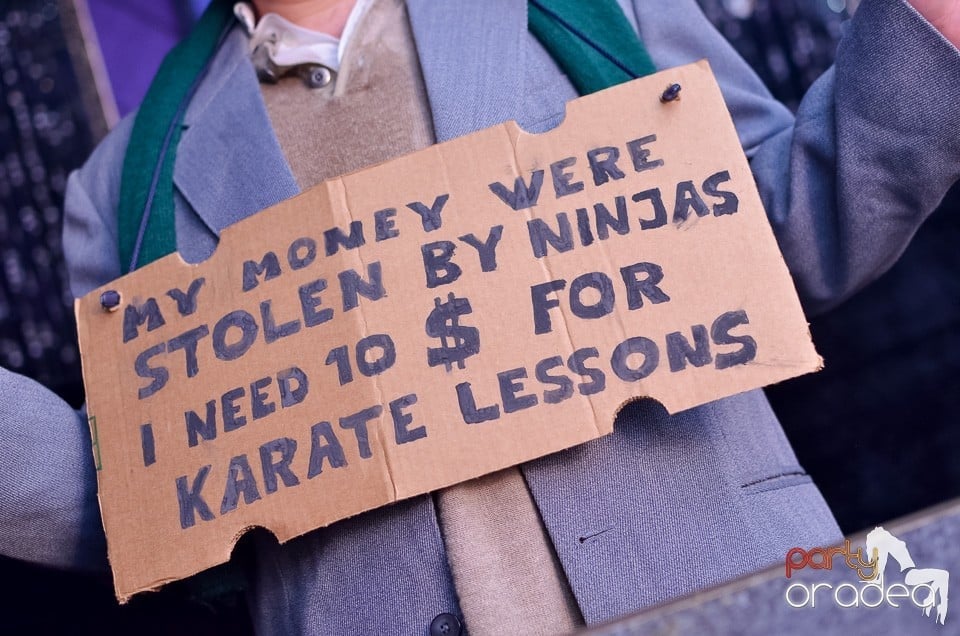 MY MONEY WERE
STOLEN BY NINJAS
I NEED 10 $ FOR
KARATE LESSONS
party
oradea